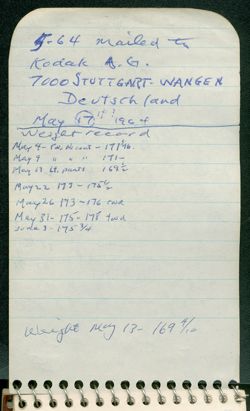 5-64 mailed to
Kodak A.G.
7000 STUTTGART-WANGEN
Deutschland
May 17, 1964
Weight record
May 4 - P.M. no coat - 171 1/2 lb.
May 9 " " " 171 -
May 13 lt. pants 169 1/2
May 22 173 - 175 1/2
May 26 173 - 176
May 31 - 175 - 178
June 3 - 175 3/4
Weight May 13 - 169 4/10